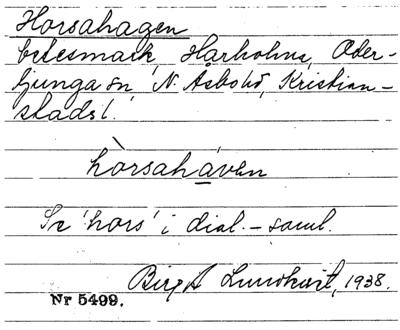 Horsahagen
betesmark, Hårholma, Oder-
ljunga sn, N. Åsbo hd, Kristian-
stads l.
hòrsahávan
Se 'hors' i dial.-saml.
Birgit Lundkvist, 1938.
Nr 5499.